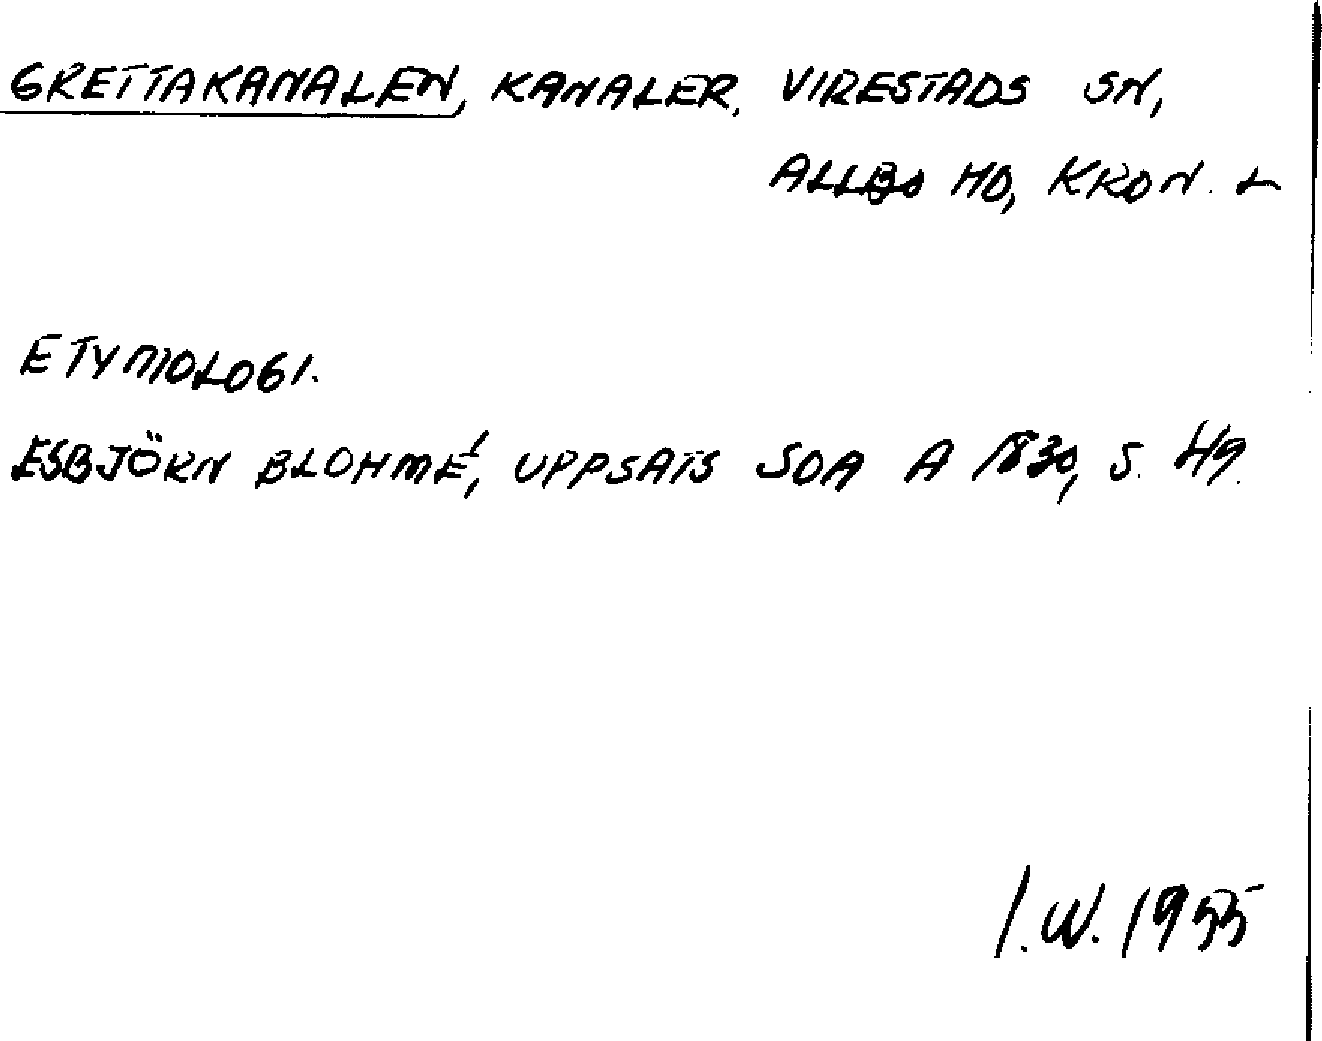 GRETTAKANALEN, KANALER, VIRESTADS SN,
ALLBO HD, KRON. L
ETYMOLOGI.
ESBJÖRN BLOHMÉ, UPPSATS SOA A 1830, S. 49.
I.W. 1955